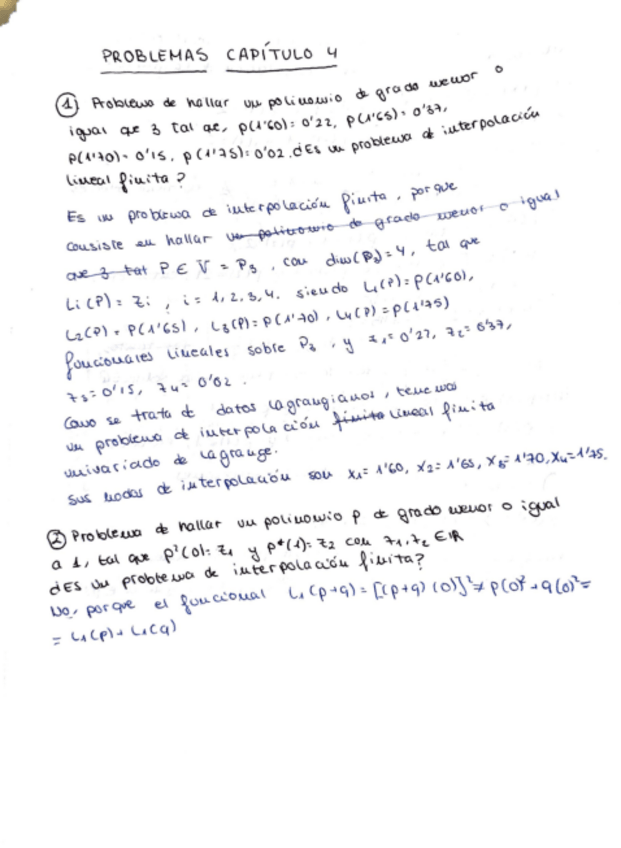 PROBLEMAS CAPÍTULO 4
① Problema de hallar un polinomio de grado menor o
igual que 3 tal que, p(1'60)= 0'22, p(1'65)= 0'37,
p(1'70)= 0'15, p(1'75)= 0'02. ¿Es un problema de interpolación
lineal finita?
Es un problema de interpolación finita, porque
consiste en hallar un polinomio de grado menor o igual
que 3 tal P ∈ V = P₃, con dim(P₃)=4, tal que
Li(P) = Zi, i = 1,2,3,4. siendo L₁(P)= P(1'60),
L₂(P)= P(1'65), L₃(P)= P(1'70), L₄(P)= P(1'75)
funcionales lineales sobre P₃, y z₁= 0'22, z₂= 0'37,
z₃= 0'15, z₄= 0'02.
Como se trata de datos lagrangianos, tenemos
un problema de interpolación finita lineal finita
univariado de Lagrange.
Sus nodos de interpolación son x₁= 1'60, x₂= 1'65, x₃= 1'70, x₄= 1'75.
② Problema de hallar un polinomio p de grado menor o igual
a 1, tal que p²(0)= z₁ y p⁴(1)= z₂ con z₁, z₂ ∈ IR
¿Es un problema de interpolación finita?
No, porque el funcional L₁(p+q) = [(p+q)(0)]² ≠ p(0)² + q(0)² =
= L₁(p) + L₁(q)